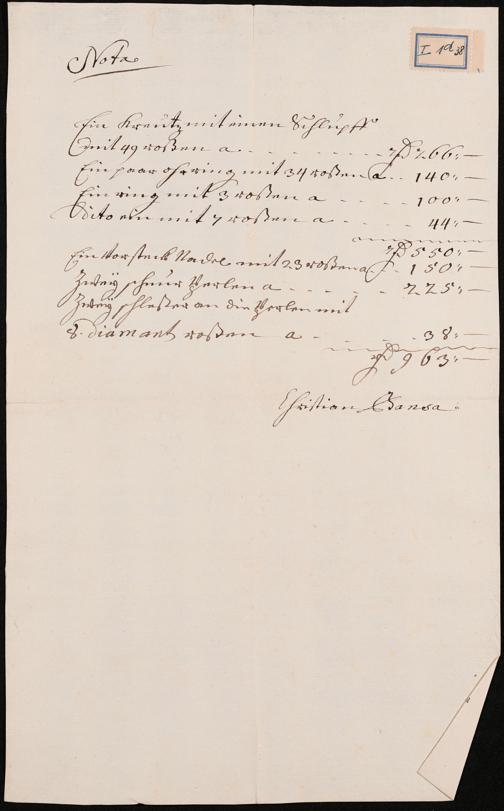 I 1d 38
Nota
Ein Kreutz mit einen Schlupff
mit 49 roßen a . . . . . . . rd 266:—
Ein paar ohrring mit 34 roßen a . . 140:—
Ein ring mit 3 roßen a . . . . 100:—
Dito ein mit 7 roßen a . . . . 44:—
rd 550:—
Ein Vorsteck Nadel mit 23 roßen a . 150:—
Zweÿ schnur Perlen a . . . . . 225:—
Zweÿ schlester an die Perlen mit
8. diamant roßen a . . . . 38:—
rd 963:—
Christian Bansa